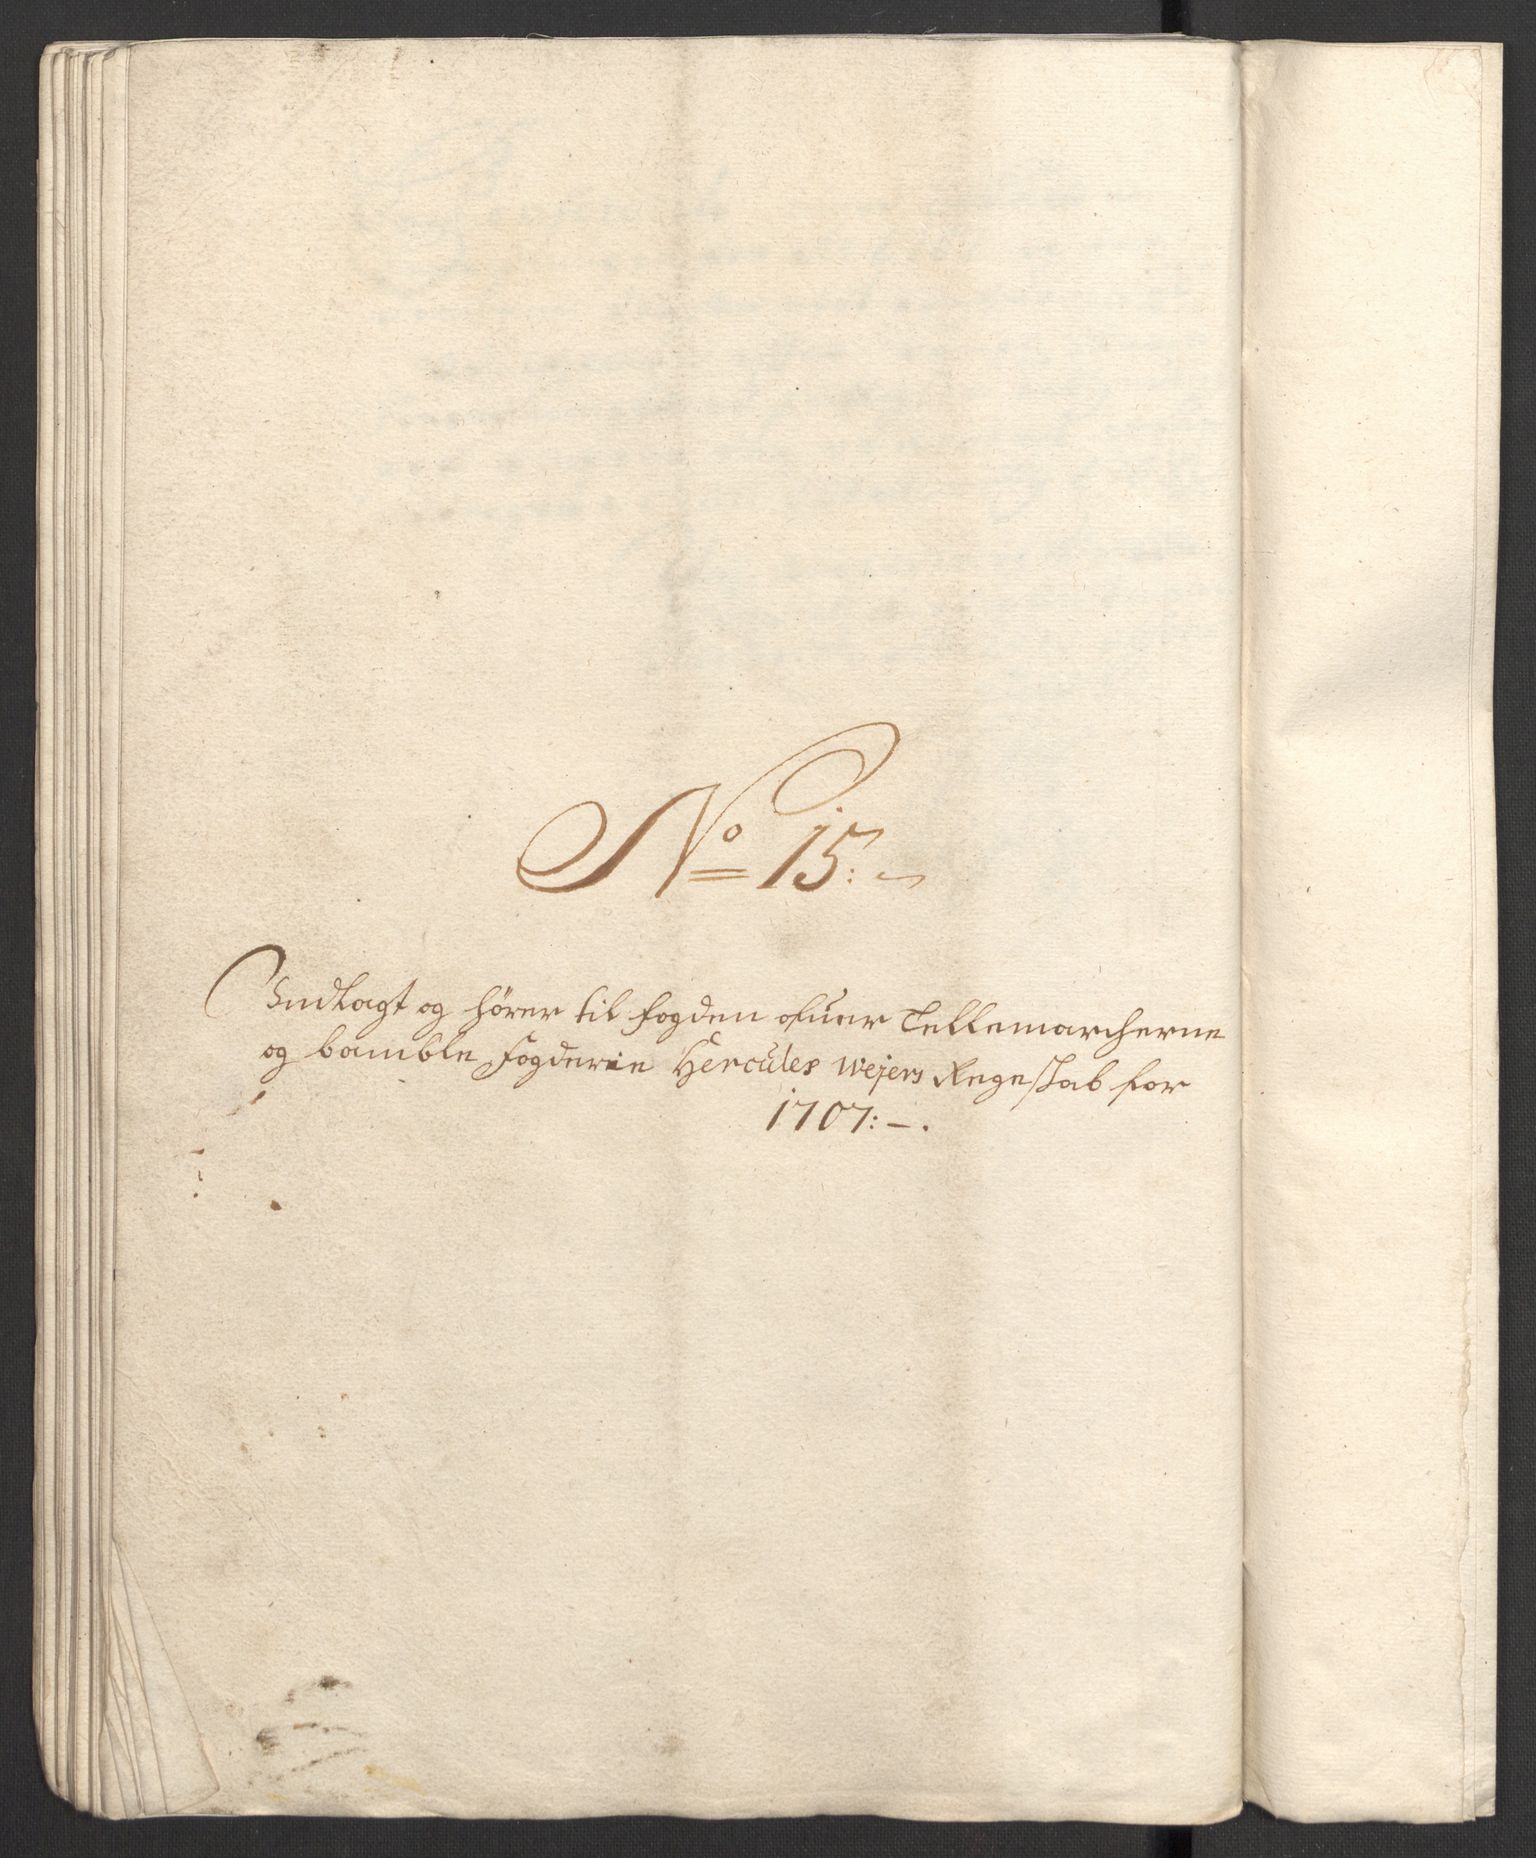 No 15:
Indlagt og hörer til fogden ofuer Tellemarcherne
og bamble Fogderie Hercules Wejers Regeskab for
1707: - .